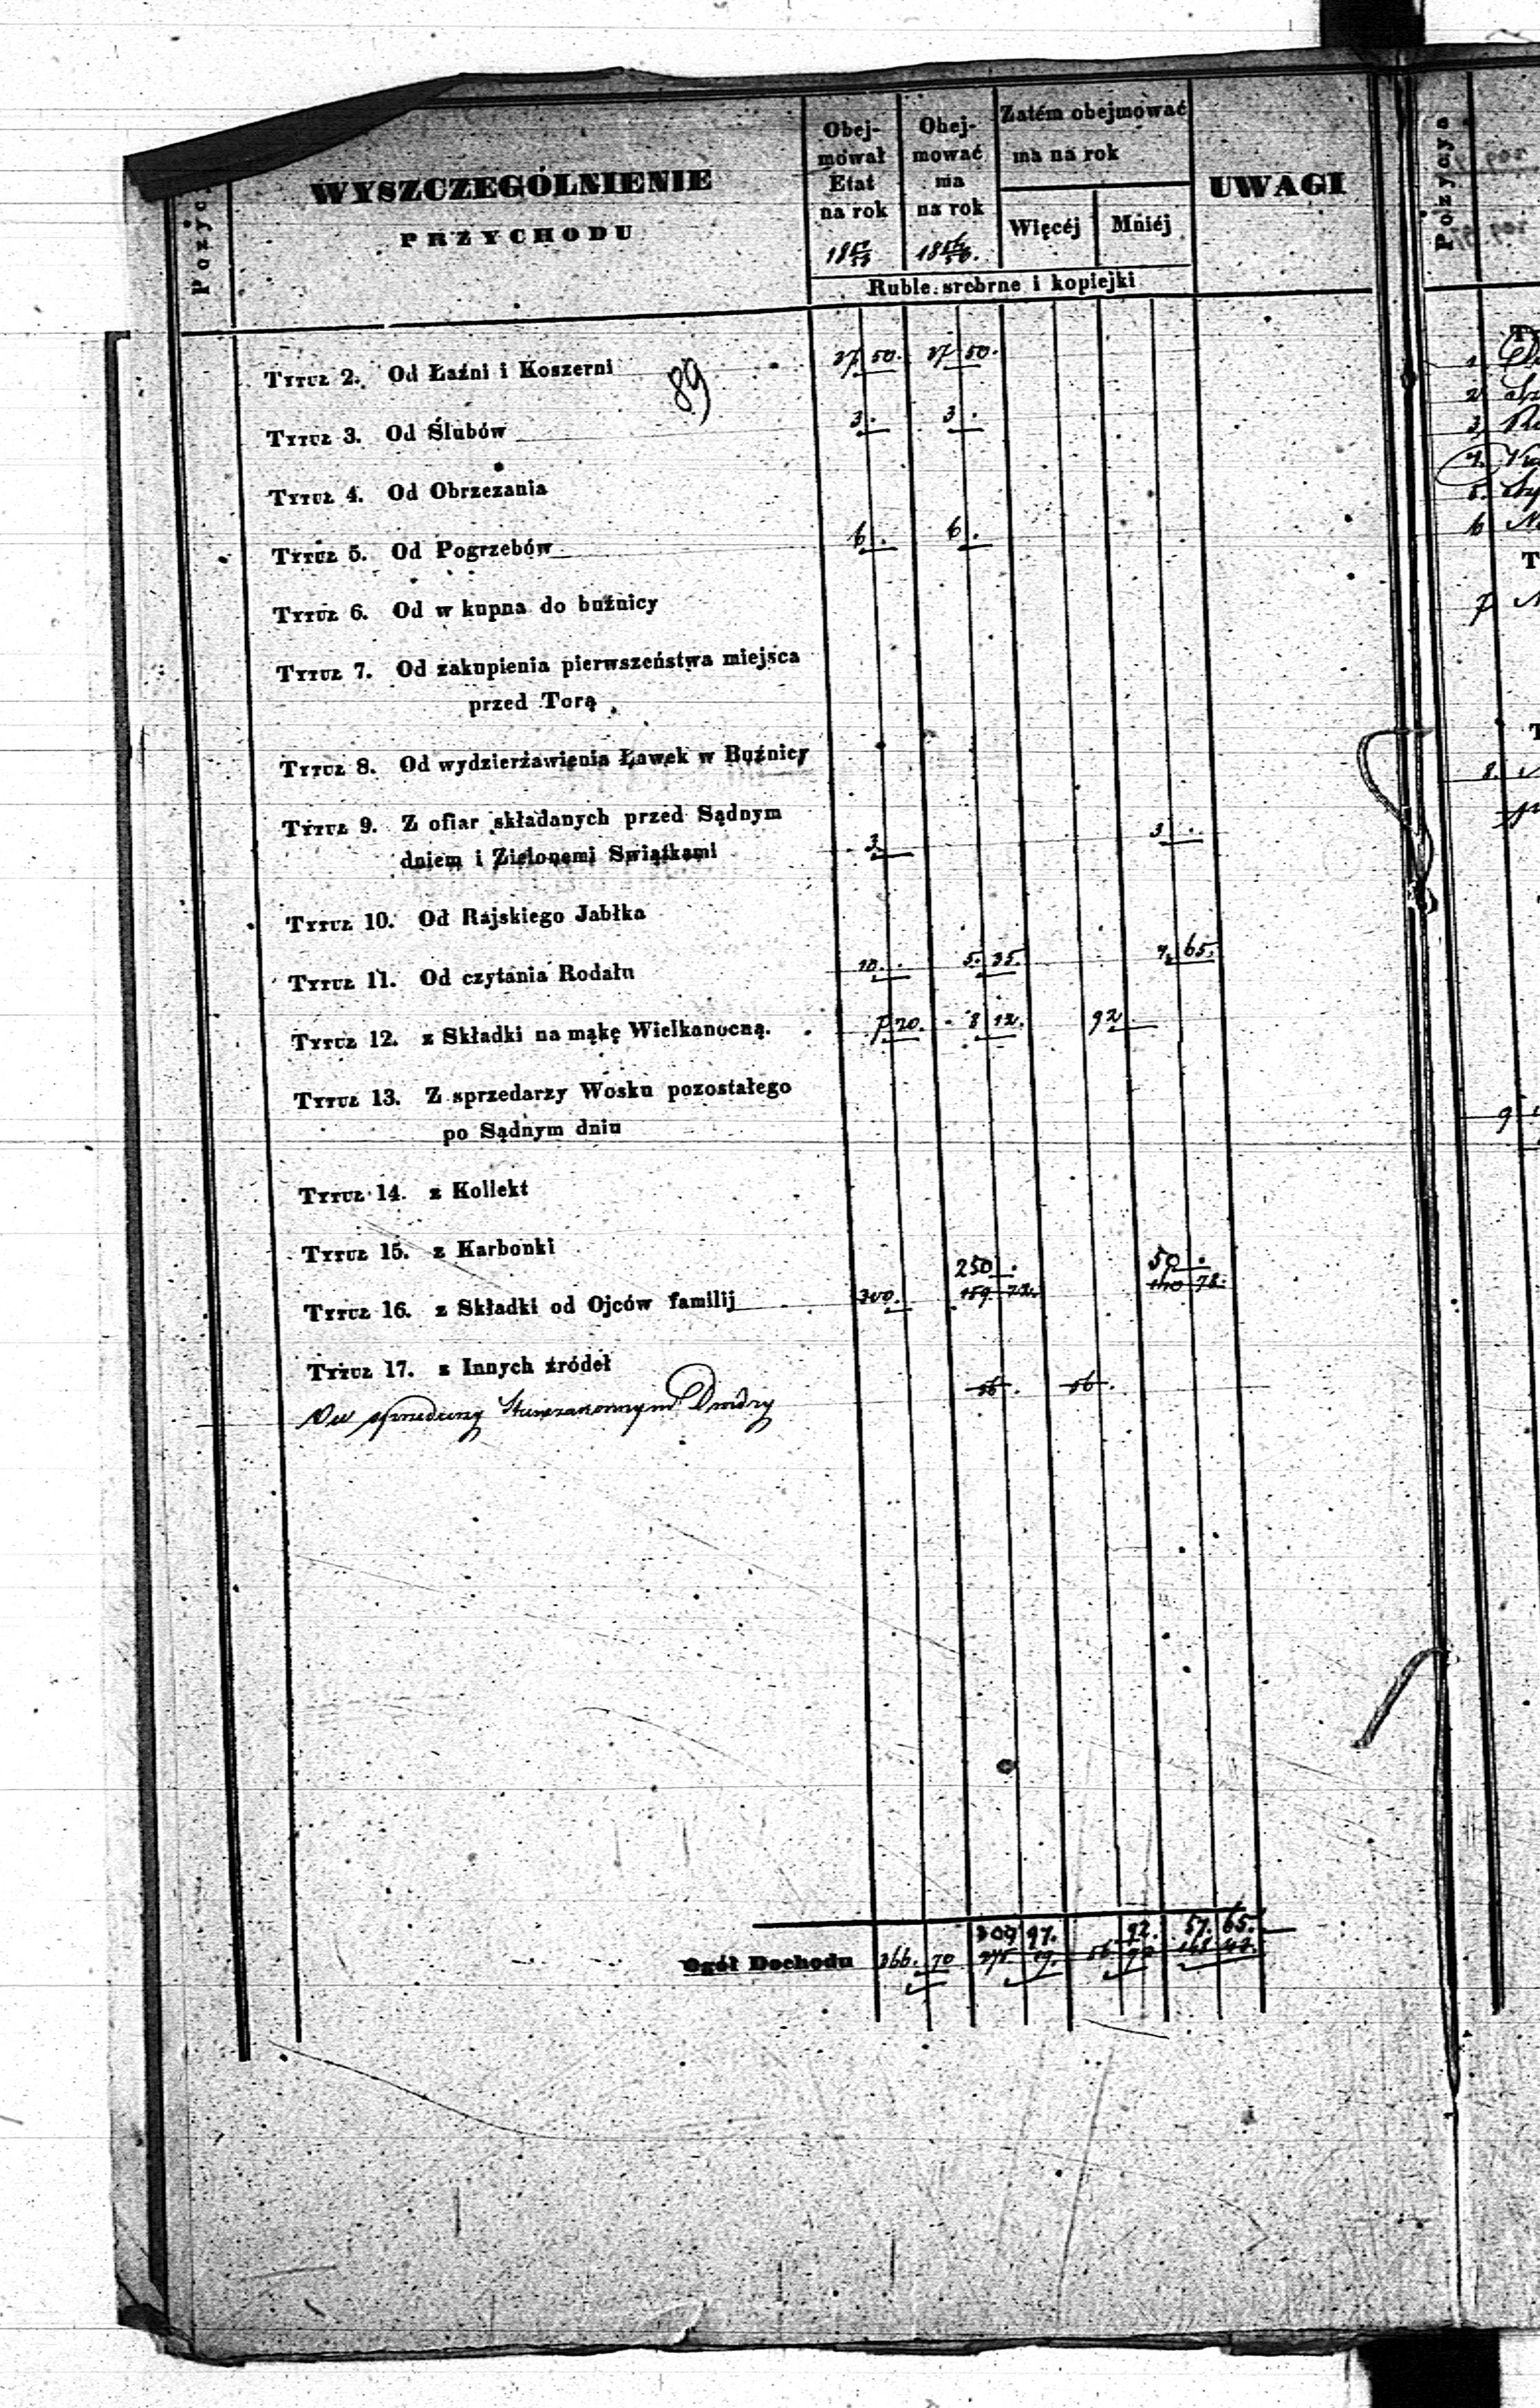 Pozyc
WYSZCZEGÓLNIENIE
PRZYCHODU
Obej-
mował
Etat
na rok
Obej-
mować
ma
na rok
Zatém obejmować
ma na rok
Więcéj
Mniéj
UWAGI
Ruble srebrne i kopiejki
89
Tytuł 2. Od Łaźni i Koszerni 37 50. 37 50.
Tytuł 3. Od Ślubów 3 . 3 .
Tytuł 4. Od Obrzezania
Tytuł 5. Od Pogrzebów 6 . 6 .
Tytuł 6. Od w kupna do buźnicy
Tytuł 7. Od zakupienia pierwszeństwa miejsca
przed Torą
Tytuł 8. Od wydzierżawienia Ławek w Buźnicy
Tytuł 9. Z ofiar składanych przed Sądnym
dniem i Zielonemi Swiątkami 3 3 .
Tytuł 10. Od Rajskiego Jabłka
Tytuł 11. Od czytania Rodału 10. . 5. 35. 4. 65.
Tytuł 12. z Składki na mąkę Wielkanocną. 7 20. 8 12. 92.
Tytuł 13. Z sprzedarzy Wosku pozostałego
po Sądnym dniu
Tytuł 14. z Kollekt
Tytuł 15. z Karbonki
250 . 50 .
Tytuł 16. z Składki od Ojców familij 300. 159 22. 140 78.
Tytuł 17. z Innych źródeł
56 . 56 .
309 97. 92. 57. 65.
Ogół Dochodu 366. 70
Pozycya